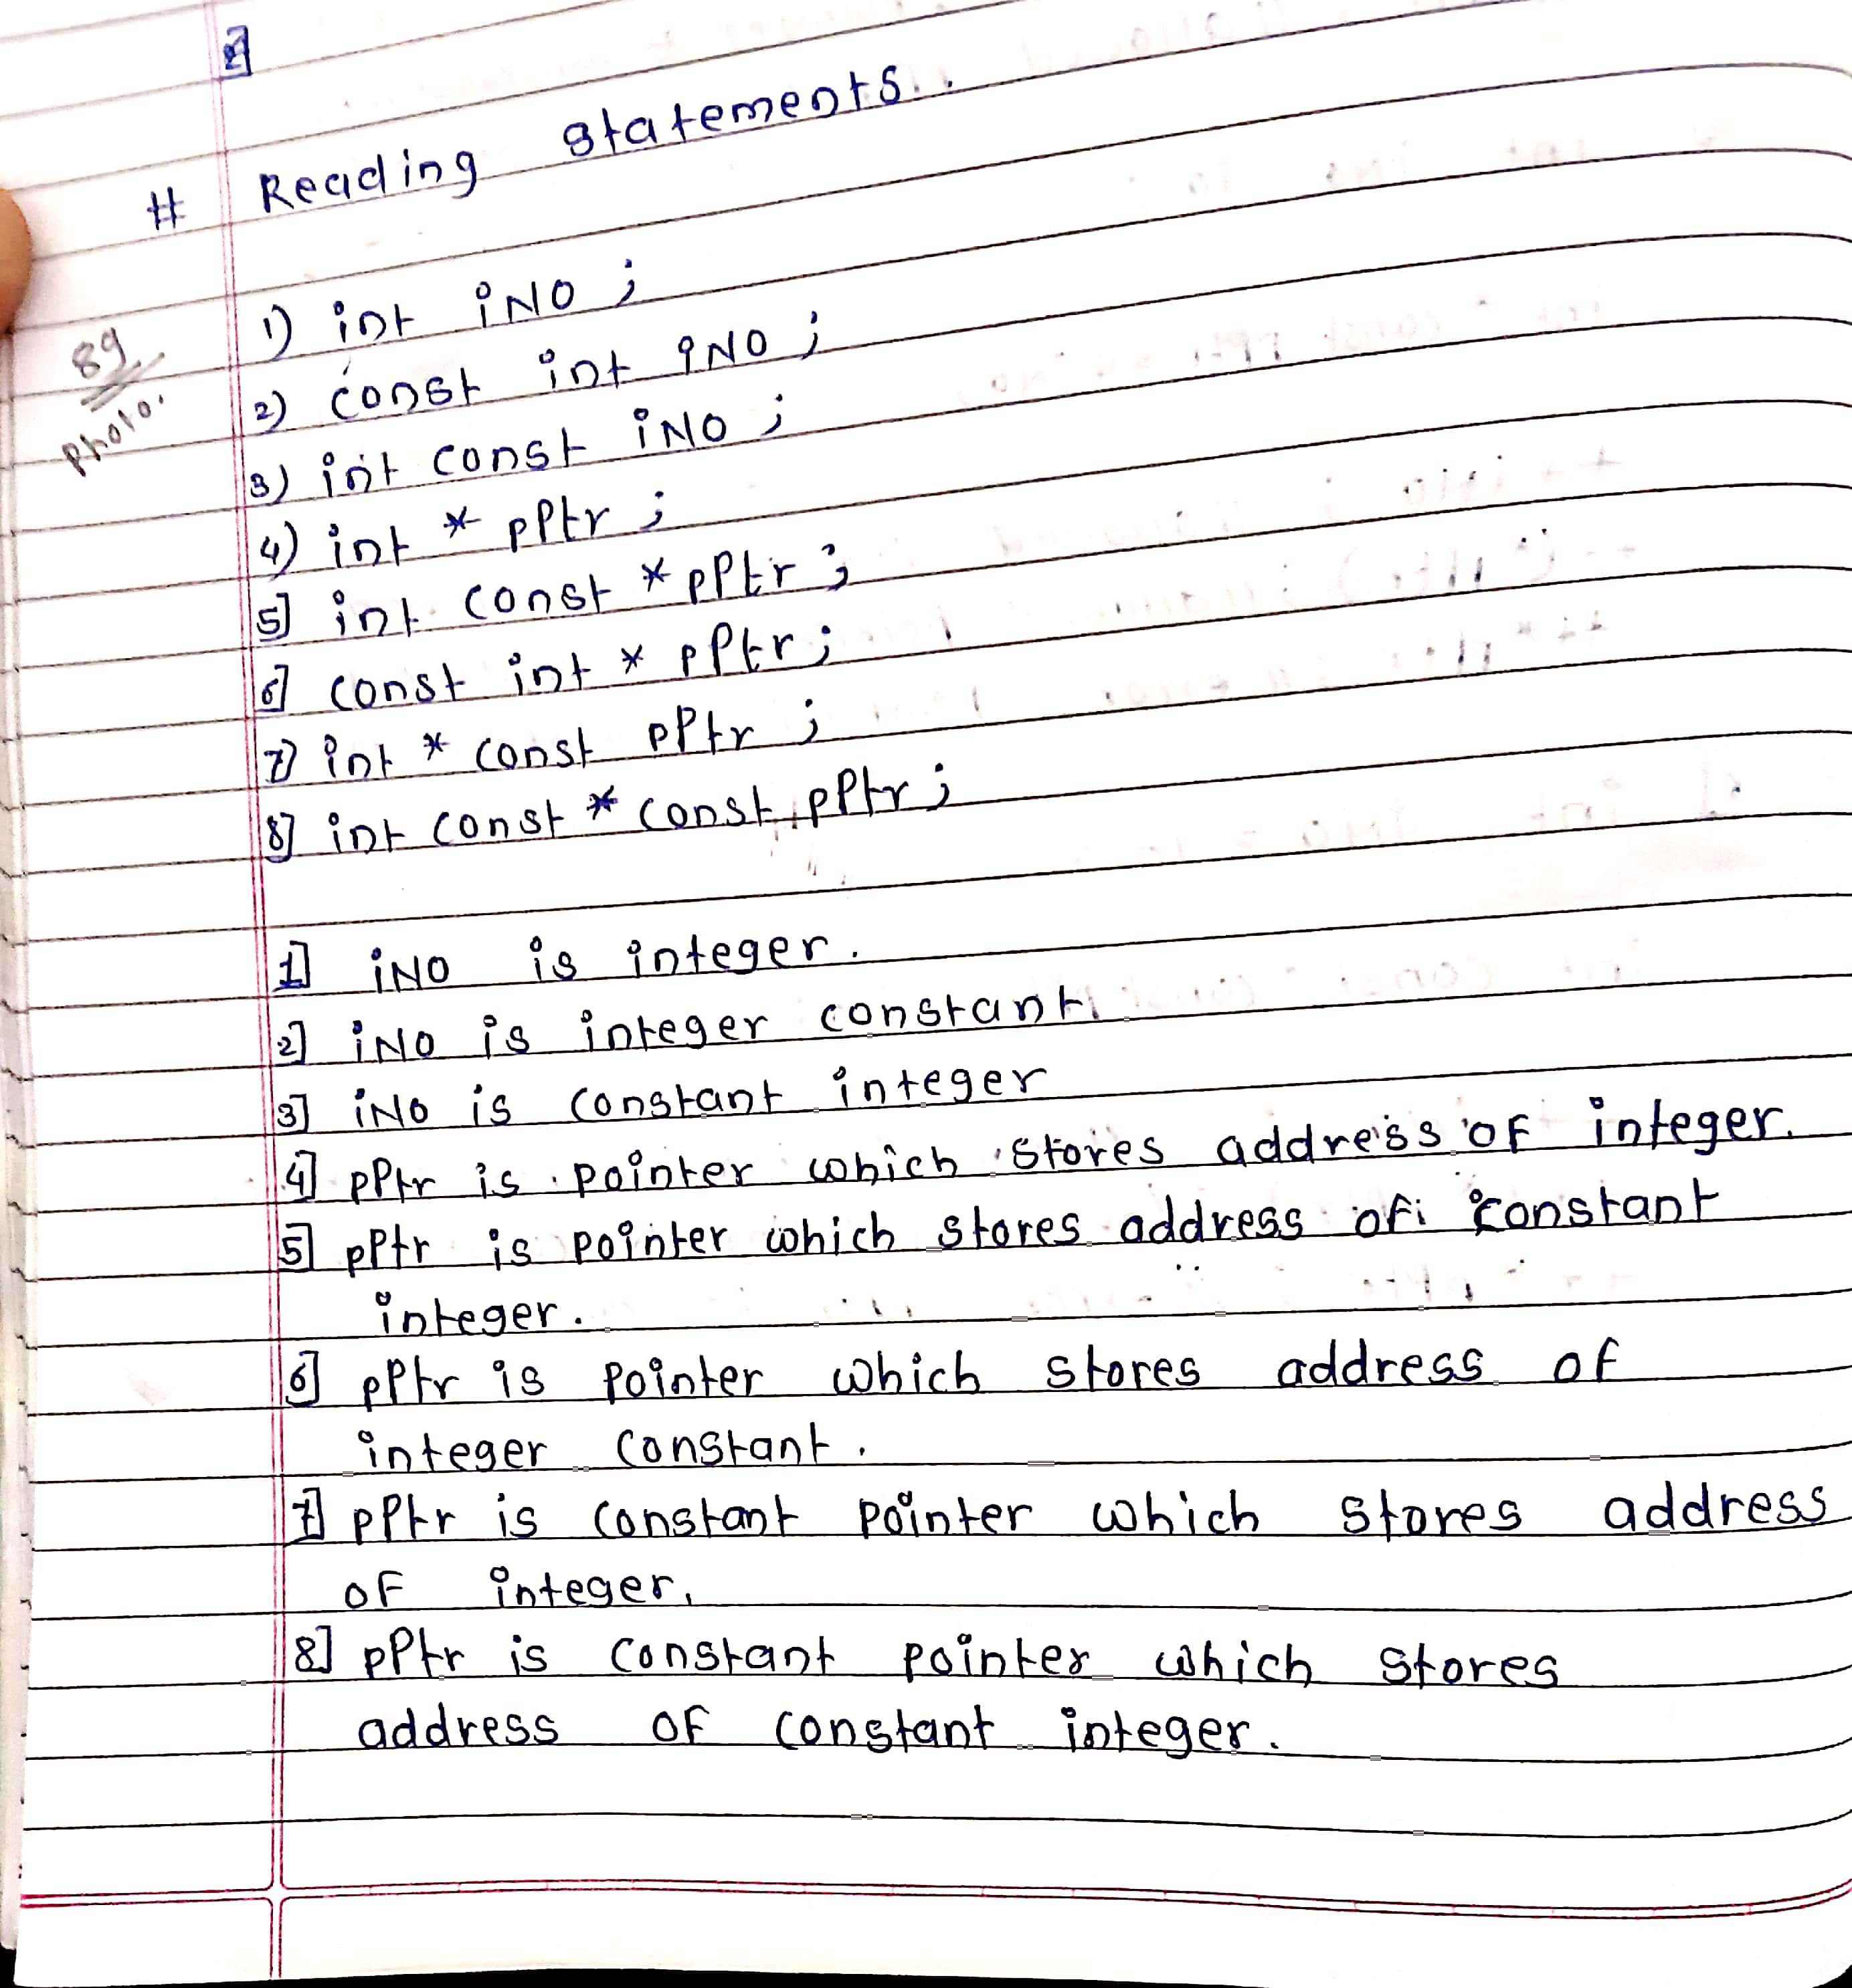 2]
# Reading statements.
89
Photo.
1) int iNO ;
2) const int iNO ;
3) int const iNO ;
4) int * pPtr ;
5] int const * pPtr ;
6] const int * pPtr ;
7] int * const pPtr ;
8] int const * const pPtr ;
1] iNO is integer.
2] iNO is integer constant.
3] iNO is constant integer
4] pPtr is pointer which stores address of integer.
5] pPtr is pointer which stores address of constant
integer.
6] pPtr is pointer which stores address of
integer constant.
7] pPtr is constant pointer which stores address
of integer.
8] pPtr is constant pointer which stores
address of constant integer.